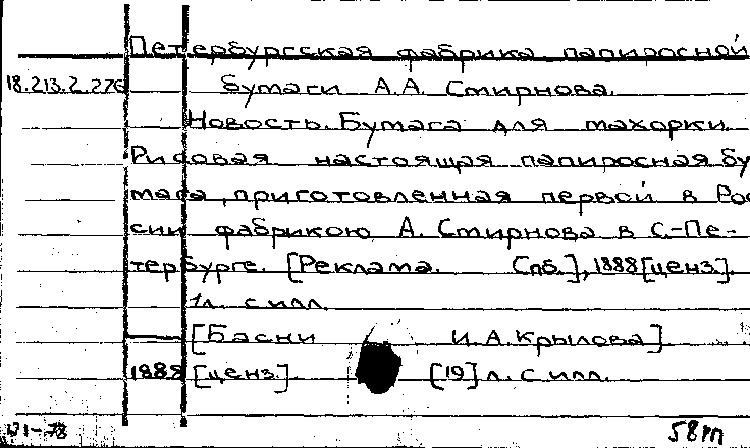 Петербургская фабрика папиросной
18.213.2.276 бумаги А.А. Смирнова.
Новость. Бумага для махорки.
Рисовая настоящая папиросная бу
мага, приготовленная первой в Рос
сии фабрикою А. Смирнова в С.-Пе-
тербурге. [Реклама. Спб.], 1888 [ценз.].
1 л. с илл.
[Басни И.А. Крылова]
1888 [ценз.] [19] л. с илл.
58 гп